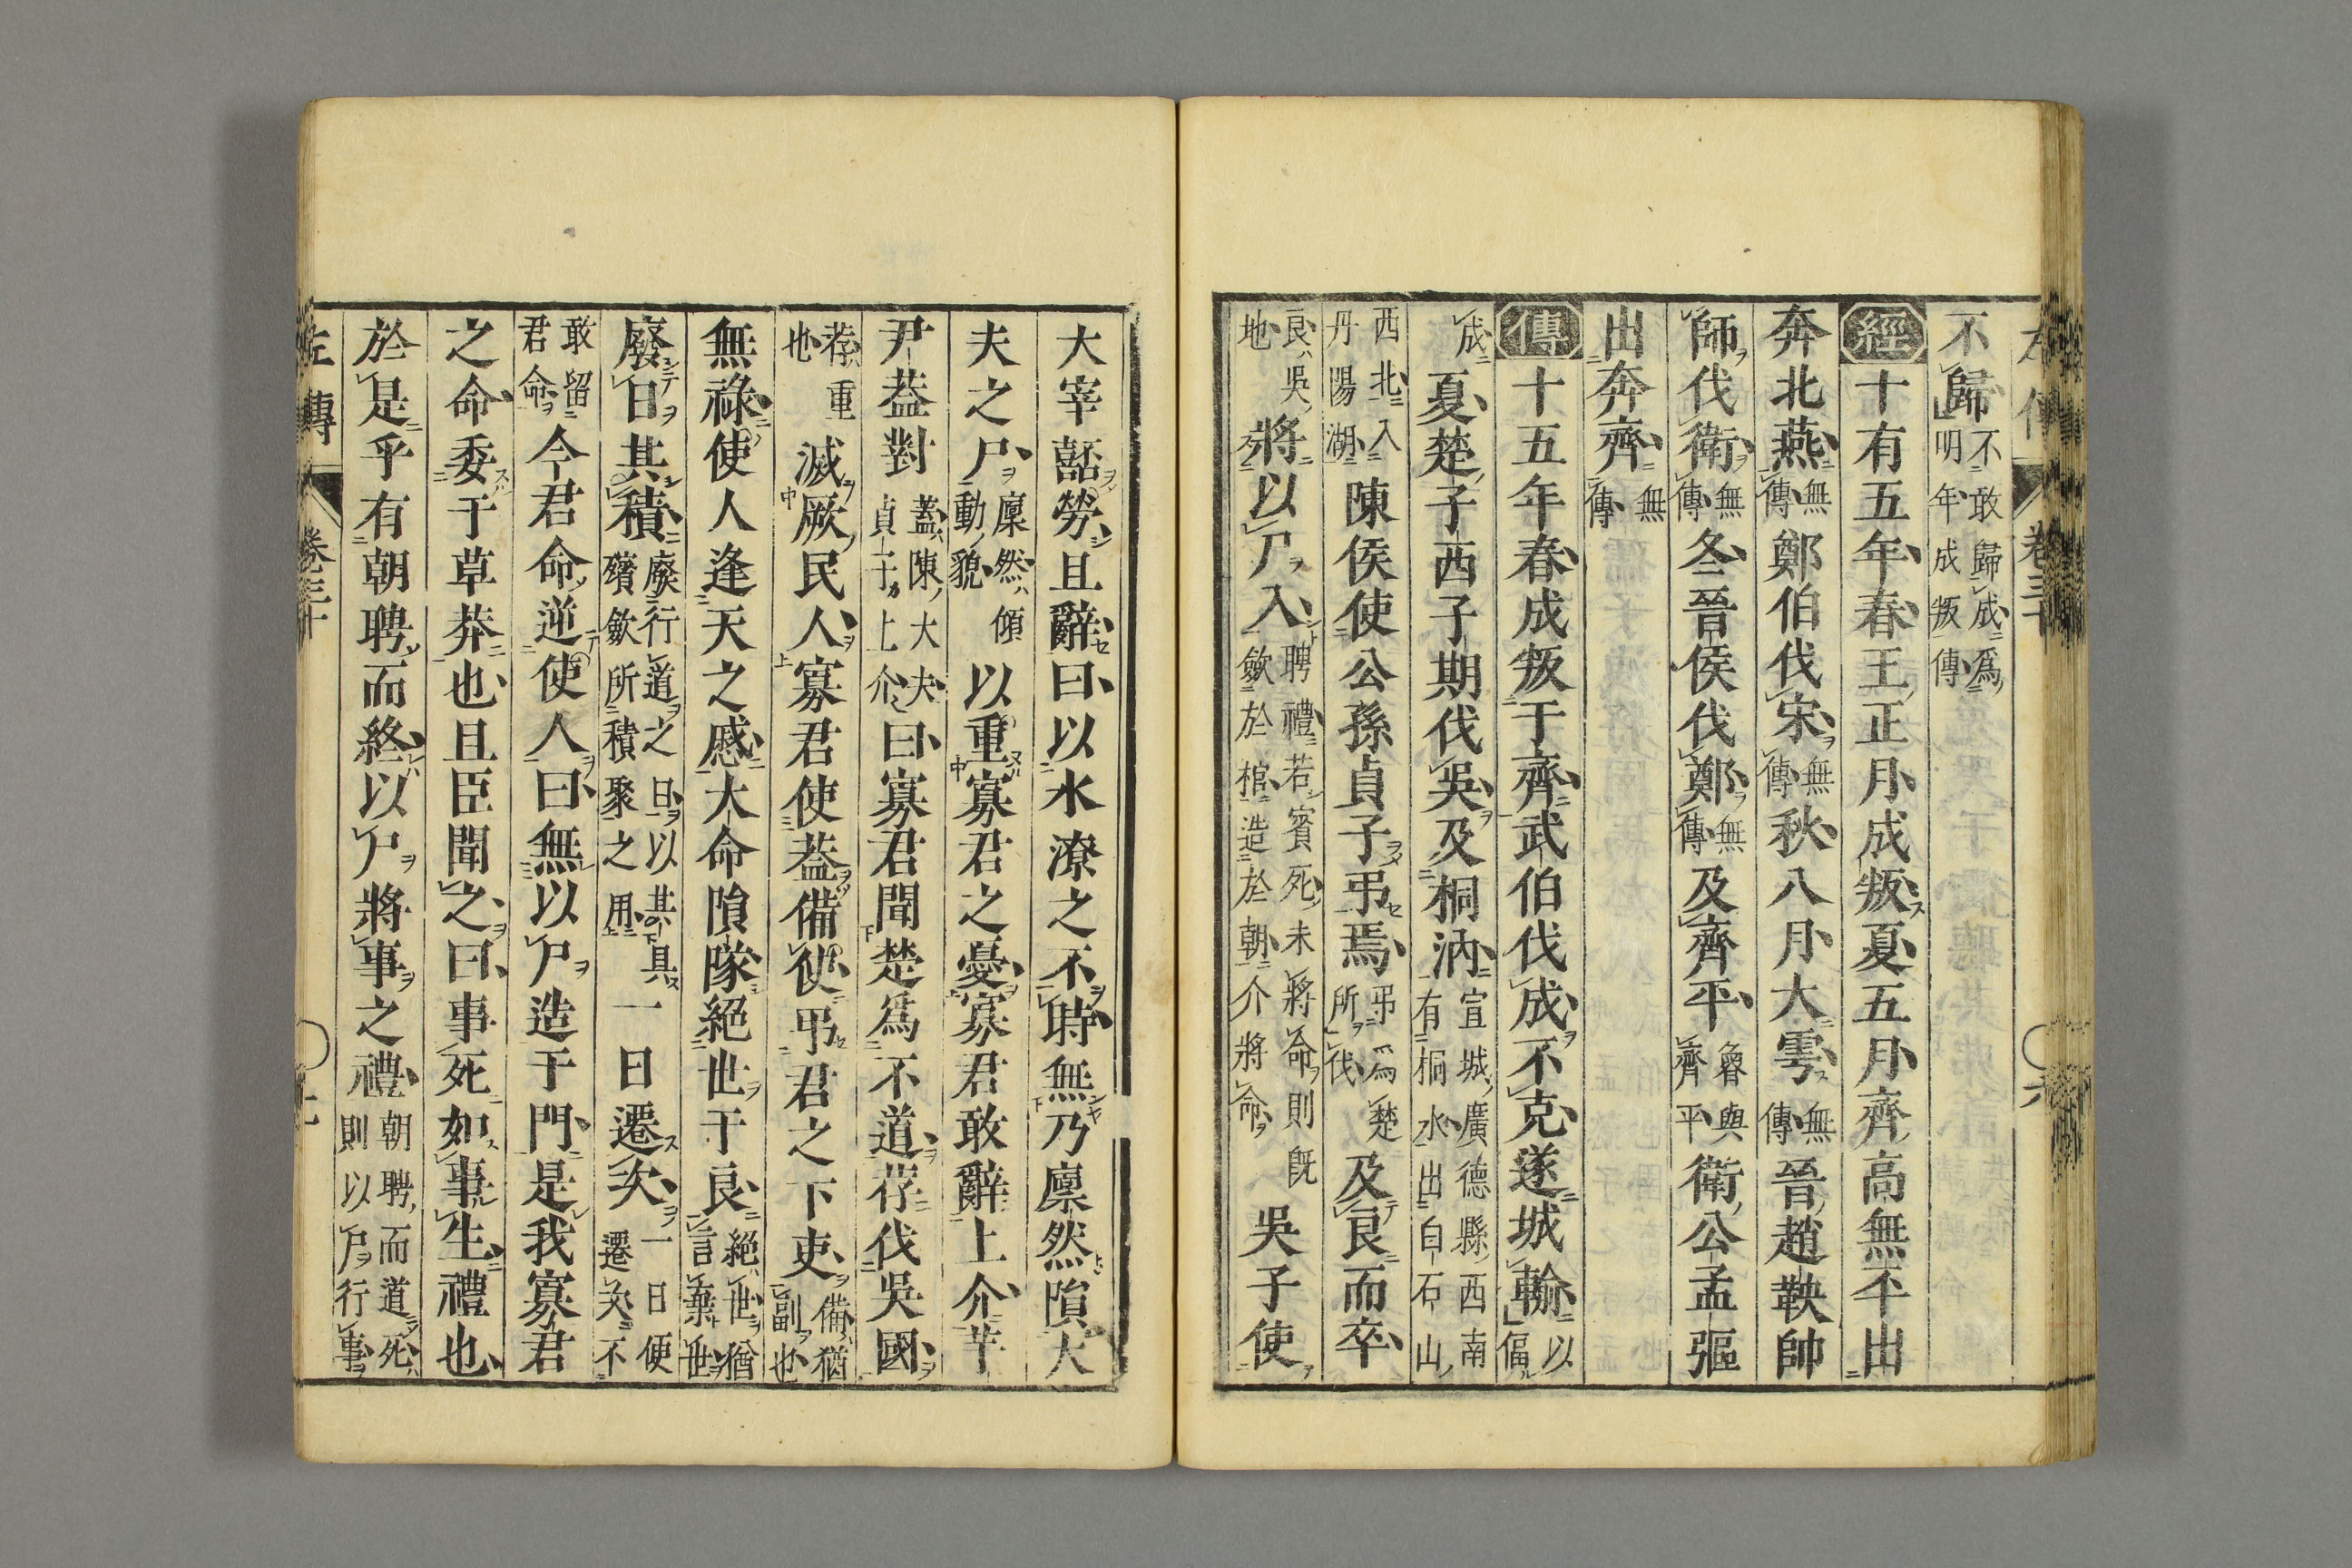 不歸不敢歸成爲明年成叛傳
經十有五年春王正月成叛夏五月齊高無㔻出
奔北燕無傳鄭伯伐宋無傳秋八月大雩無傳晉趙鞅帥
師伐衛無傳冬晉侯伐鄭無傳及齊平魯與齊平衛公孟彄
出奔齊無傳
傳十五年春成叛于齊武伯伐成不克遂城輸以偪
成夏楚子西子期伐吳及桐汭宣城廣德縣西南有桐水出白石山
西北入丹陽湖陳侯使公孫貞子弔焉弔爲楚所伐及良而卒
良吳地將以尸入聘禮若賓死未將命則既斂於棺造於朝介將命吳子使
大宰嚭勞且辭曰以水潦之不時無乃廩然隕大
夫之尸廩然傾動貌以重寡君之憂寡君敢辭上介芋
尹蓋對蓋陳大夫貞子上介曰寡君聞楚爲不道荐伐吳國
荐重也滅厥民人寡君使蓋備使弔君之下吏備猶副也
無祿使人逢天之慼大命隕隊絕世于良絕世猶言棄世
廢日其積廢行道之日以其具殯斂所積聚之用一日遷次一日便遷次不
敢留君命今君命逆使人曰無以尸造于門是我寡君
之命委于草莽也且臣聞之曰事死如事生禮也
於是乎有朝聘而終以尸將事之禮朝聘而道死則以尸行事
左傳 卷三十